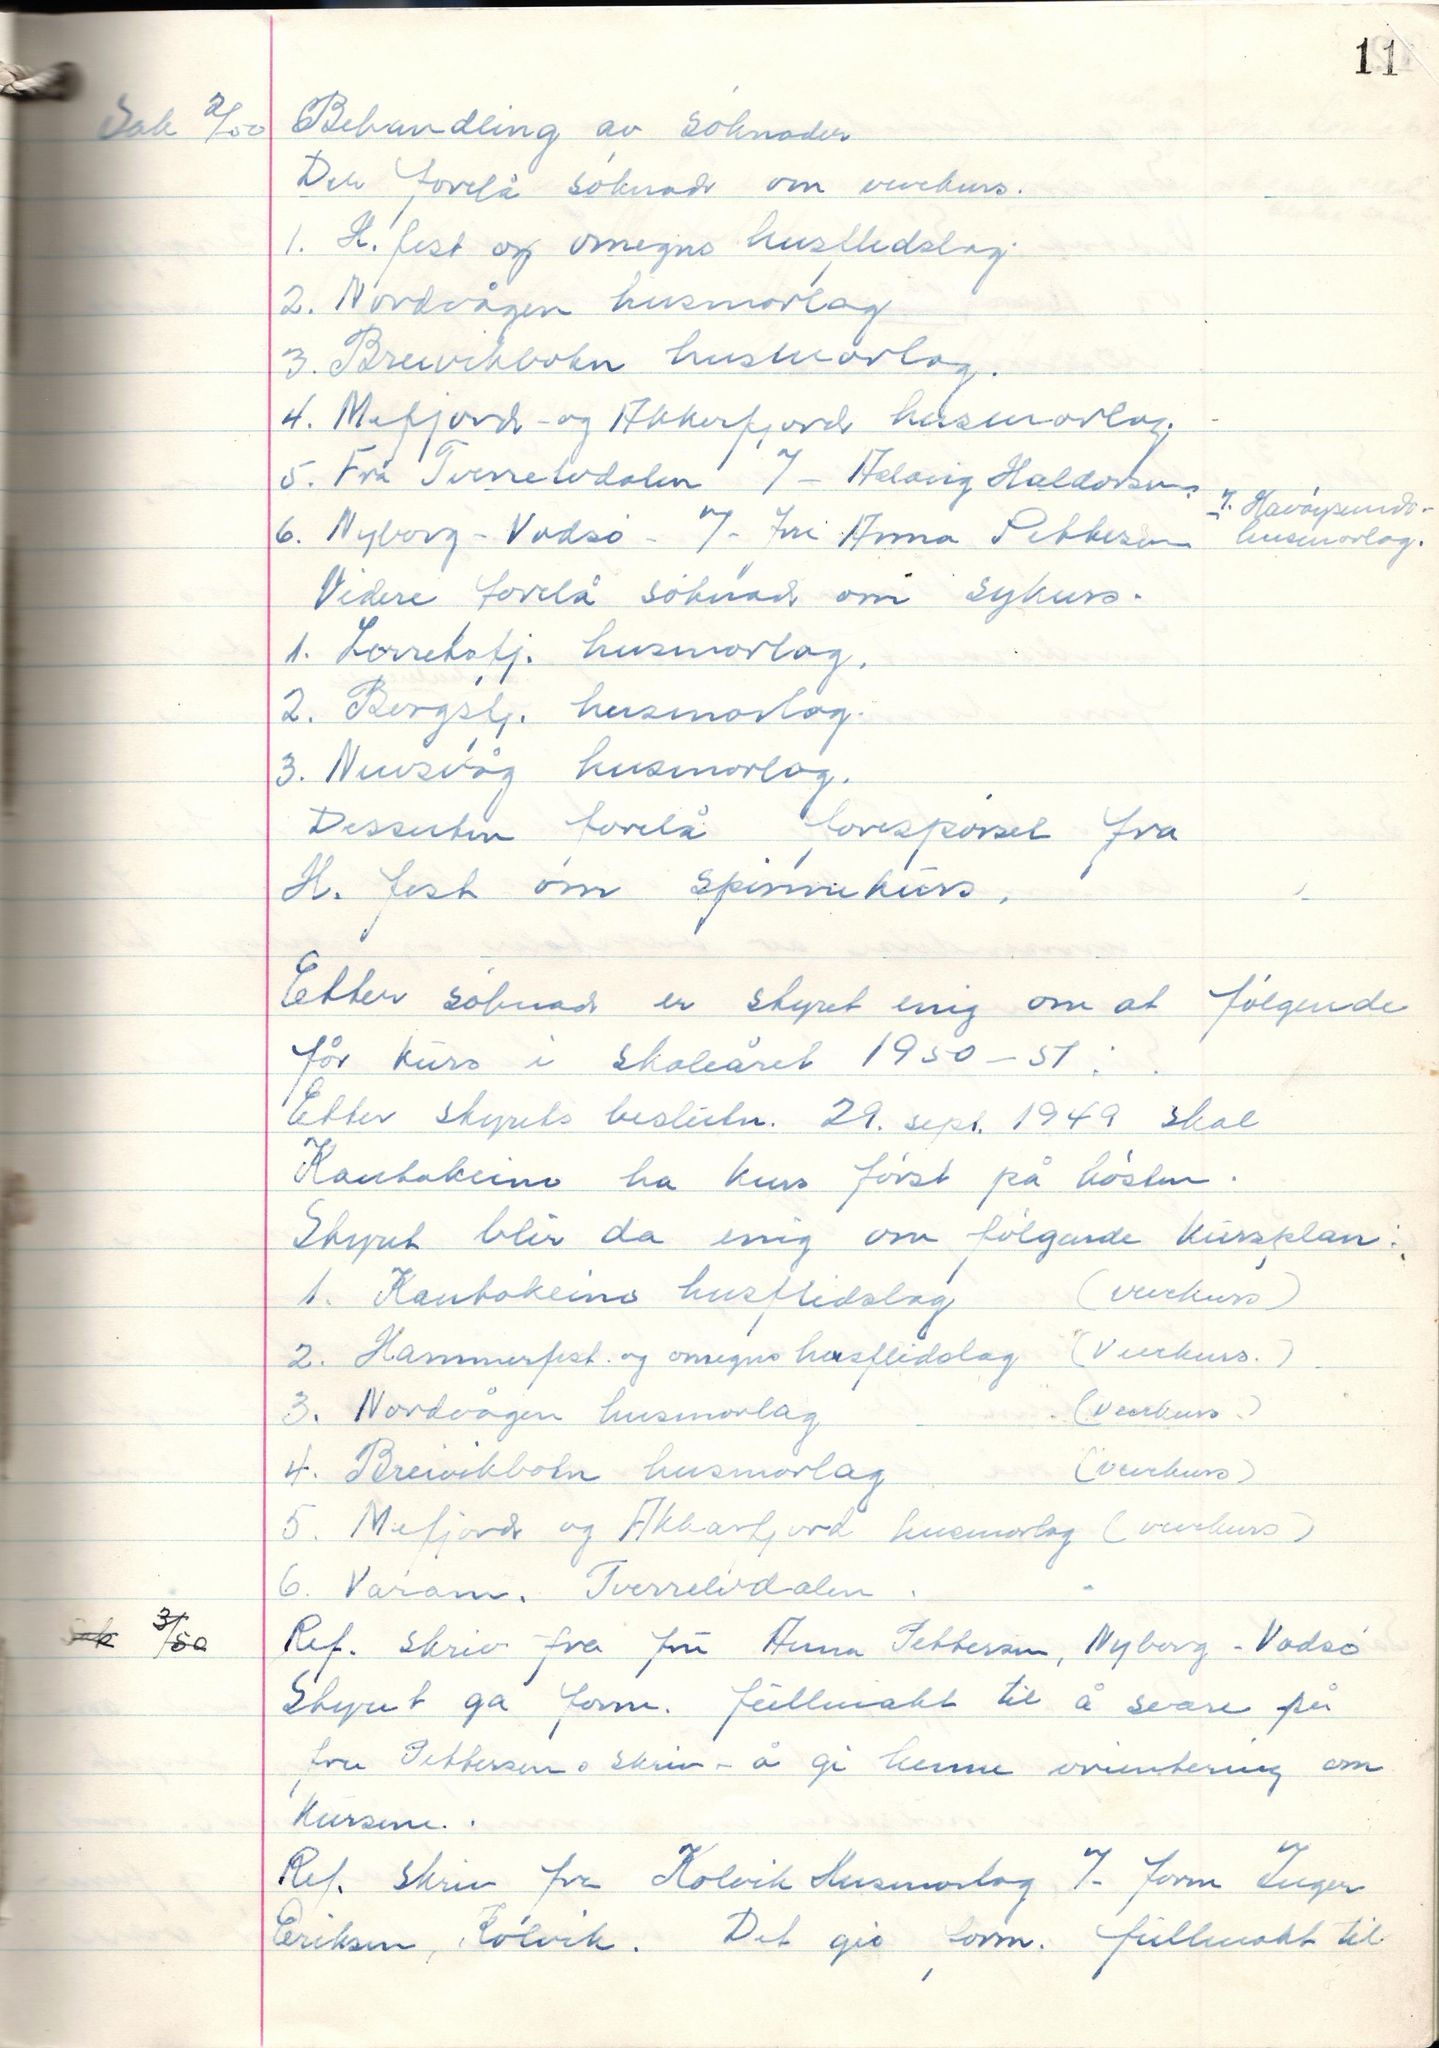 11
Sak 2/50 Behandling av söknader
Det forelå söknad om vevkurs.
1. H.fest og omegns husflidslag
2. Nordvågen husmorlag
3. Breivikbotn husmorlag.
4. Mefjord - og Akkarfjord husmorlag.
5. Frå Tverrelvdalen v/ - Aslaug Haldorsen
6. Nyborg - Vadsö - v/- fru Anna Pettersen
7. Havöysunds husmorlag.
Videre forelå söknad om sykurs.
1. Lerretsfj. husmorlag.
2. Bergsfj. husmorlag.
3. Nuvsvåg husmorlag.
Dessuten forelå forespörsel fra
H. fest om spinnekurs.
Etter söknad er styret enig om at fölgende
får kurs i skoleåret 1950-51:
Etter styrets beslutn. 29. sept. 1949 skal
Kautokeino ha kurs först på hösten.
Styret blir da enig om fölgende kursplan:
1. Kautokeino husflidslag (vevkurs)
2. Hammerfest og omegns husflidslag (Vevkurs.)
3. Nordvågen husmorlag (vevkurs.)
4. Breivikbotn husmorlag (vevkurs)
5. Mefjord og Akkarfjord husmorlag (vevkurs)
6. Varam. Tverrelvdalen.
Sak 3/50 Ref. skriv fra fru Anna Pettersen, Nyborg - Vadsö
Styret ga form. fullmakt til å svare på
fru Pettersens skriv - å gi henne orientering om
kursene.
Ref. skriv fra Kolvik Husmorlag v/- form Inger
Eriksen, Kolvik. Det gis form. fullmakt til